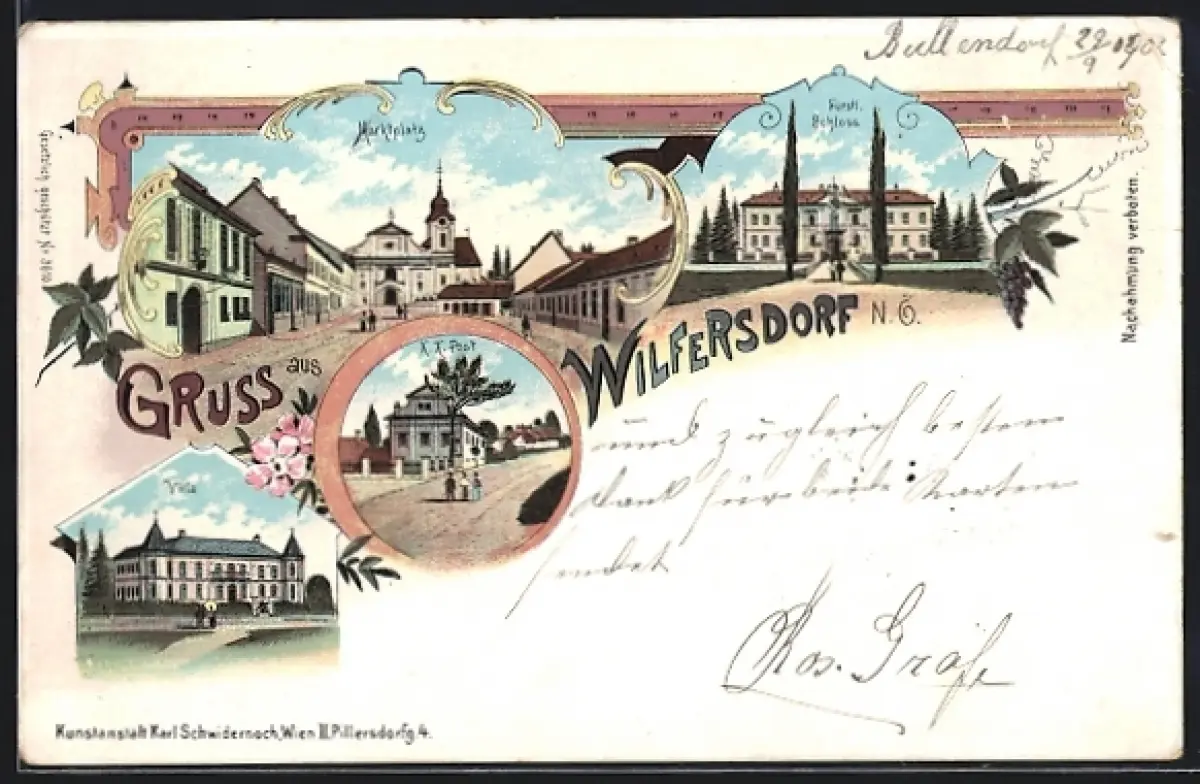 Bullendorf 29/9 1902
Marktplatz
Fürstl.
Schloss.
Gesetzlich geschützt
Nachahmung verboten.
K. K. Post
GRUSS aus WILFERSDORF N. Ö.
Villa
und zugleich besten
Dank für beide Karten
sendet
Ros. Gräf
Kunstanstalt Karl Schwidernoch, Wien II, Pillersdorfg. 4.